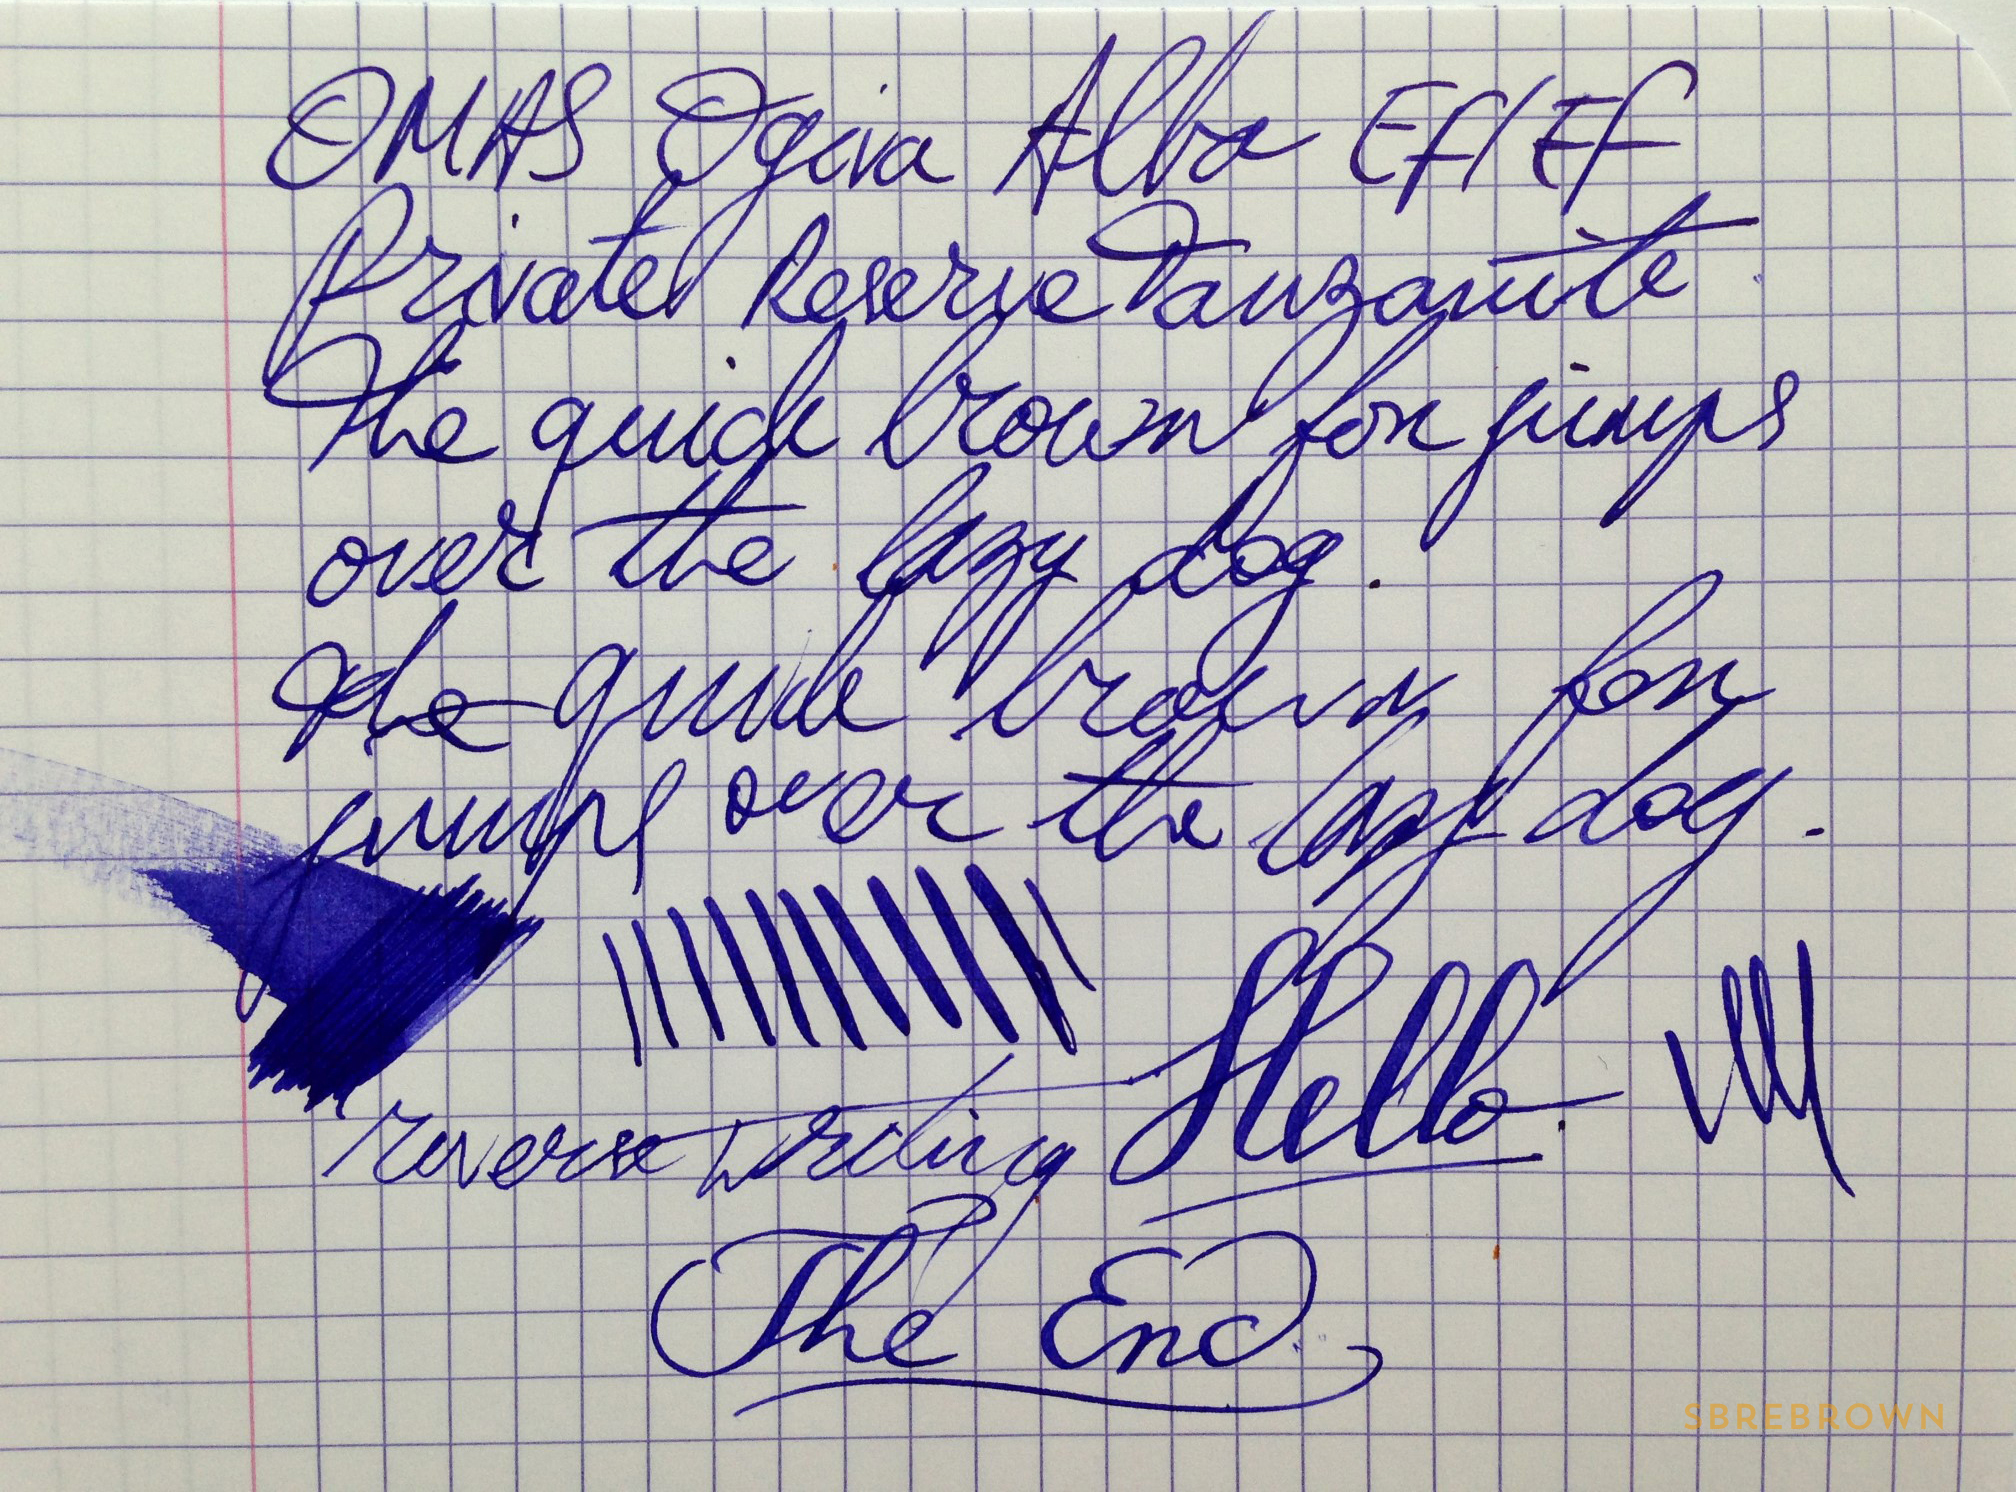 OMAS Ogiva Alba EF/EF
Private Reserve Tanzanite
The quick brown fox jumps
over the lazy dog.
The quick brown fox
jumps over the lazy dog.
Hello
reverse writing
The End
SBREBROWN